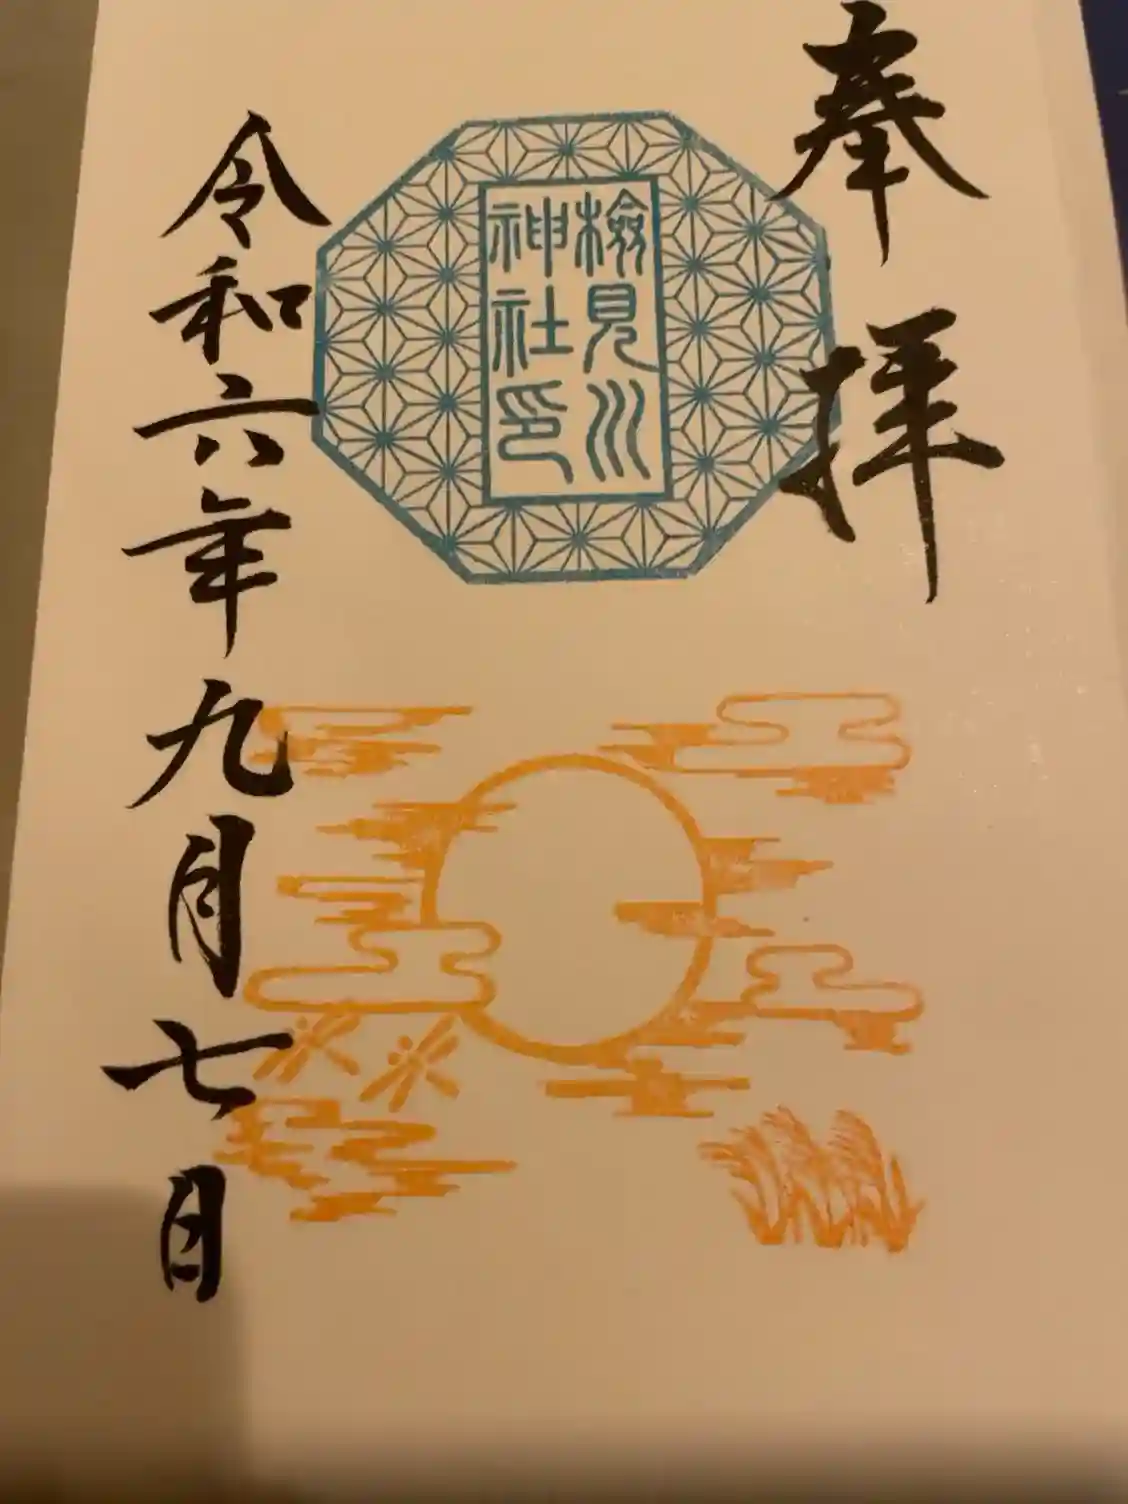 奉拝
檢見川
神社印
令和六年九月七日